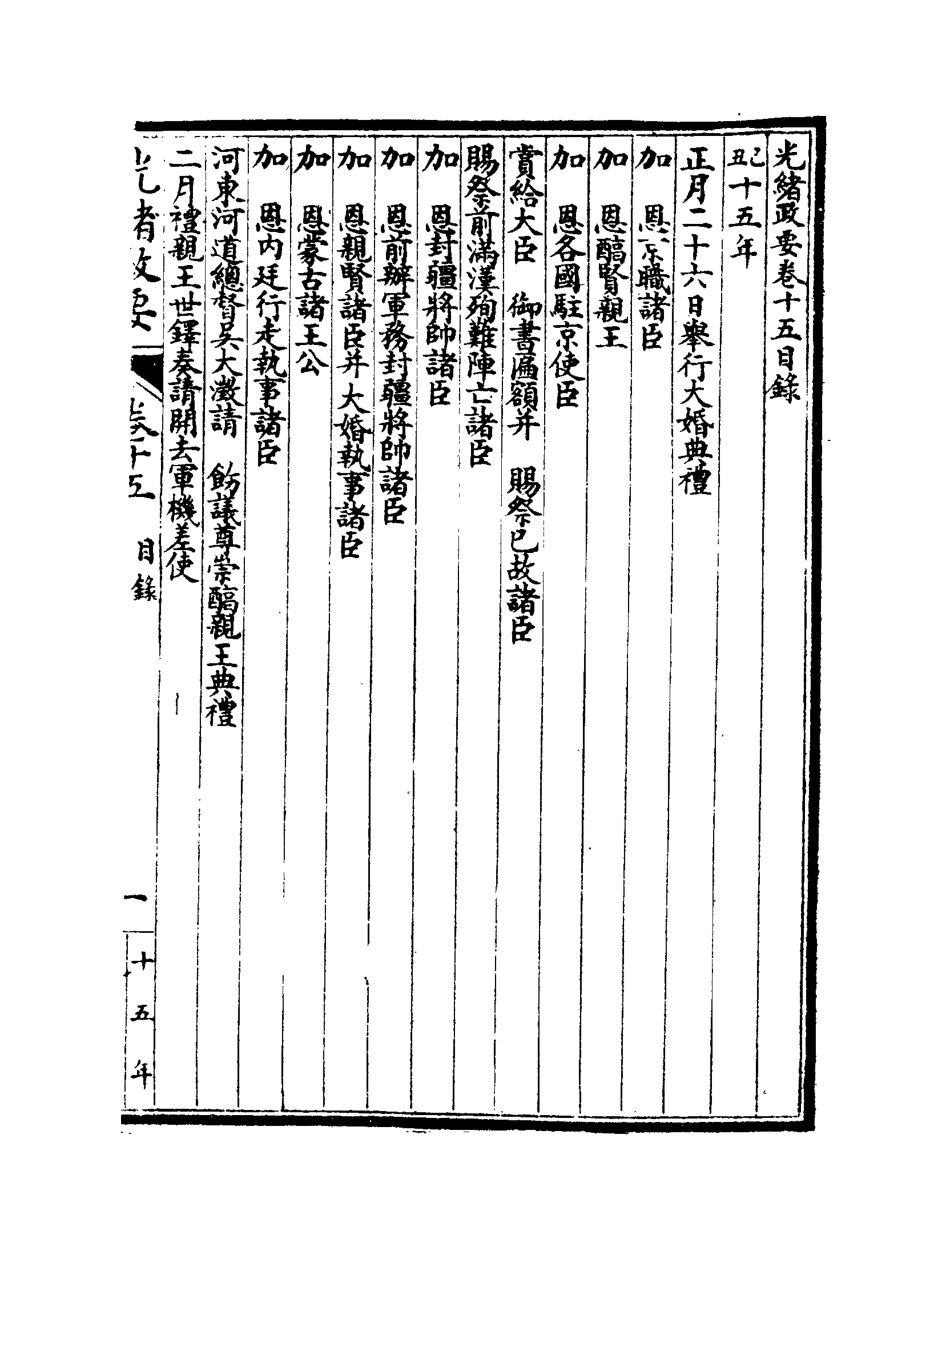 光緒政要卷十五目錄
己丑十五年
正月二十六日舉行大婚典禮
加　恩京職諸臣
加　恩醕賢親王
加　恩各國駐京使臣
賞給大臣　御書匾額并　賜祭已故諸臣
賜祭前滿漢殉難陣亡諸臣
加　恩封疆將帥諸臣
加　恩前辦軍務封疆將帥諸臣
加　恩親賢諸臣并大婚執事諸臣
加　恩蒙古諸王公
加　恩内廷行走執事諸臣
河東河道總督吳大澂請　飭議尊崇醕親王典禮
二月禮親王世鐸奏請開去軍機差使
光緒政要　卷十五　目錄　一　十五年